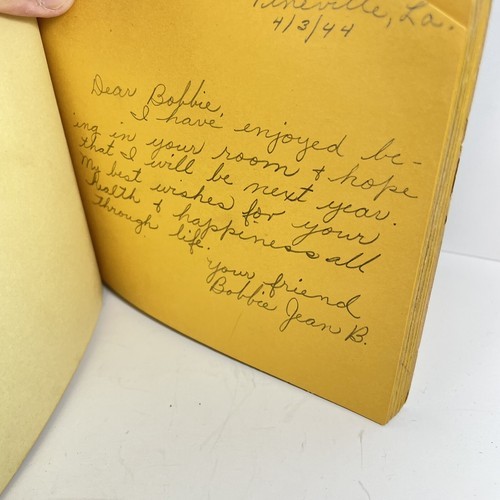 Pineville, La.
4/3/44
Dear Bobbie,
I have enjoyed be-
ing in your room & hope
that I will be next year.
My best wishes for your
health & happiness all
through life.
your friend
Bobbie Jean B.